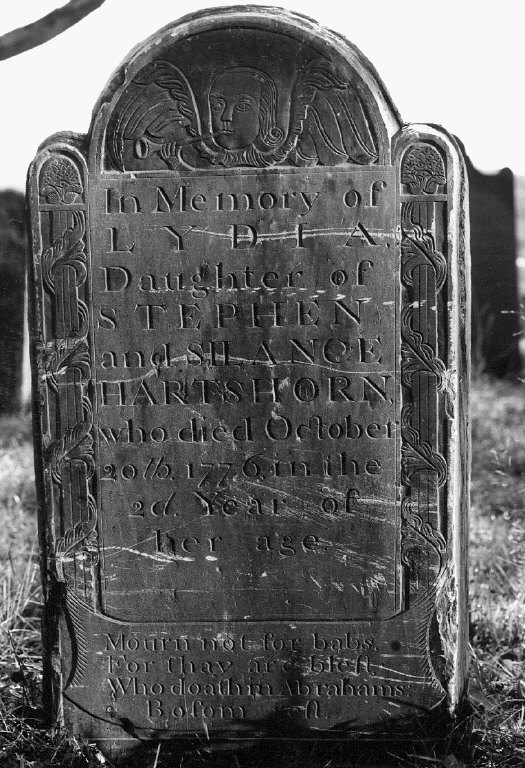 In Memory of
LYDIA,
Daughter of
STEPHEN
and SILANCE
HARTSHORN,
who died October
20th, 1776, in the
2d. Year of
her age.
Mourn not for babs,
For thay are blest
Who doath in Abrahams
Bosom rest.